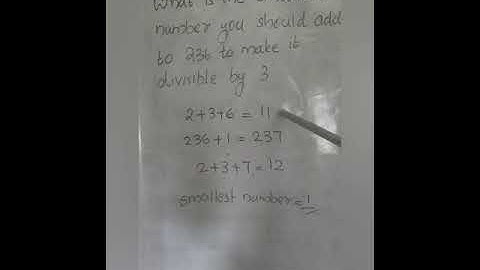 What is the
number you should add
to 236 to make it
divisible by 3
2+3+6 = 11
236+1 = 237
2+3+7=12
smallest number=1